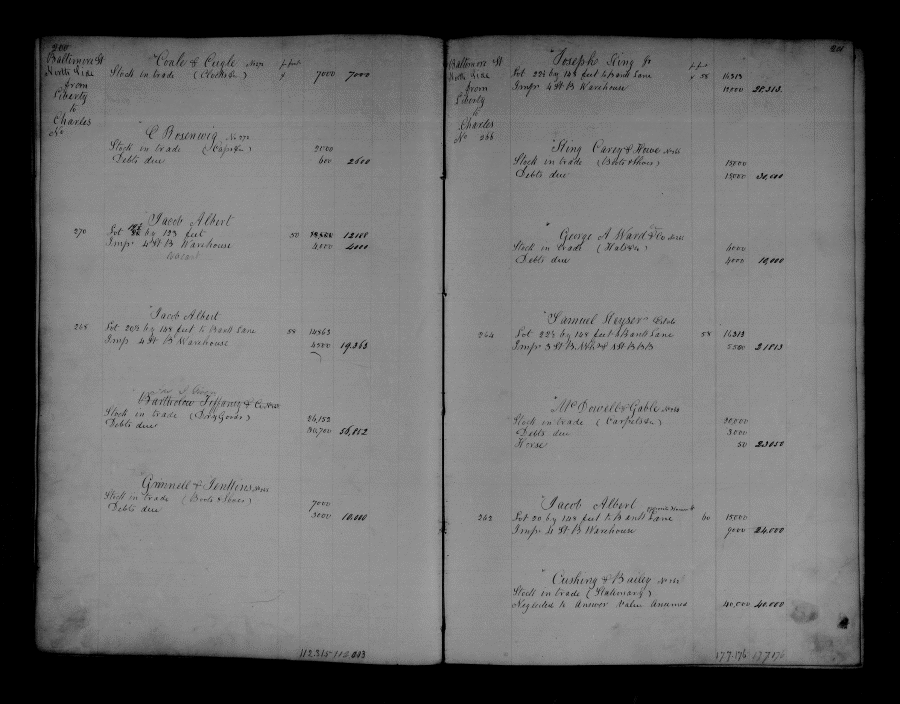 200
Baltimore St
North Side
from
Liberty
to
Charles
No
Coale & Cugle
p foot
Stock in trade (Clocks &c) 7000 7000
C Rosenwig No 272
Stock in trade (Caps &c) 2000
Debts due 600 2600
Jacob Albert
270 Lot by 123 feet 50 12168
Impr 4 St B Warehouse 4,000 4000
Jacob Albert
268 Lot 20½ by 148 feet to Bank Lane 58 14863
Impr 4 St B Warehouse 4500 19,363
Tiffany & Co
Stock in trade (Dry Goods) 26,152
Debts due 30,700 56,852
Grinnell & Jenkins
Stock in trade (Boots & Shoes) 7000
Debts due 3000 10,000
112.315
201
Baltimore St
North Side
from
Liberty
to
Charles
No 266
Joseph King Jr
p foot
Lot 22½ by 148 feet to Bank Lane 58 16313
Impr 4 St B Warehouse 12,000 28,313
King Carey & Howe
Stock in trade (Boots & Shoes) 15000
Debts due 15,000 30,000
George A Ward & Co
Stock in trade (Hats &c) 6000
Debts due 4000 10,000
Samuel Keyser
264 Lot 22½ by 148 feet to Bank Lane 58 16313
Impr 3 St B 5500 21813
McDowell & Gable
Stock in trade (Carpets &c) 20,000
Debts due 3000
Horse 50 23050
Jacob Albert
262 Lot 20 by 148 feet to Bank Lane 60 15000
Impr 4 St B Warehouse 9000 24.000
Cushing & Bailey
Stock in trade (Stationary)
Neglected to answer value assumed 40,000 40.000
177.176